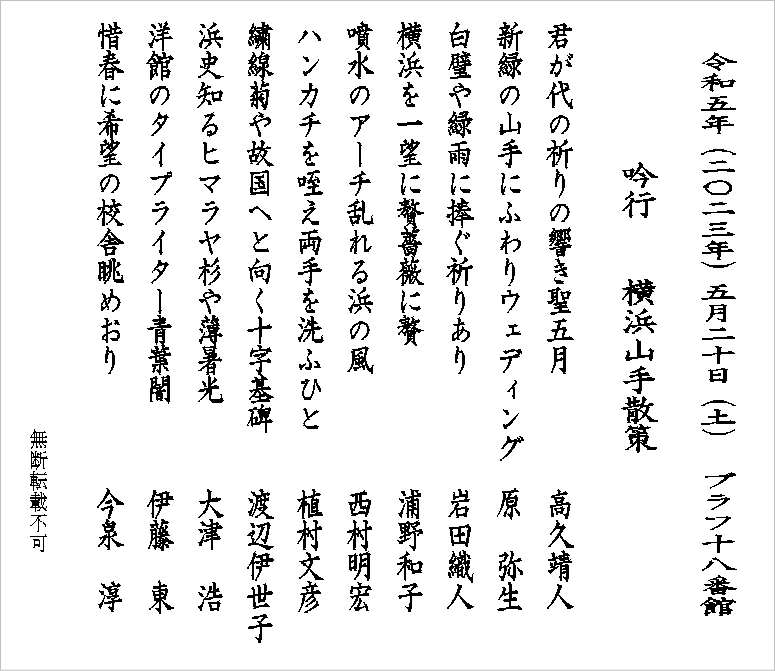 令和五年（二〇二三年）五月二十日（土）　ブラフ十八番館
吟行　横浜山手散策
君が代の祈りの響き聖五月　高久靖人
新緑の山手にふわりウェディング　原　弥生
白璧や緑雨に捧ぐ祈りあり　岩田織人
横浜を一望に贅薔薇に贅　浦野和子
噴水のアーチ乱れる浜の風　西村明宏
ハンカチを咥え両手を洗ふひと　植村文彦
繍線菊や故国へと向く十字基碑　渡辺伊世子
浜史知るヒマラヤ杉や薄暑光　大津　浩
洋館のタイプライター青葉闇　伊藤　東
惜春に希望の校舎眺めおり　今泉　淳
無断転載不可